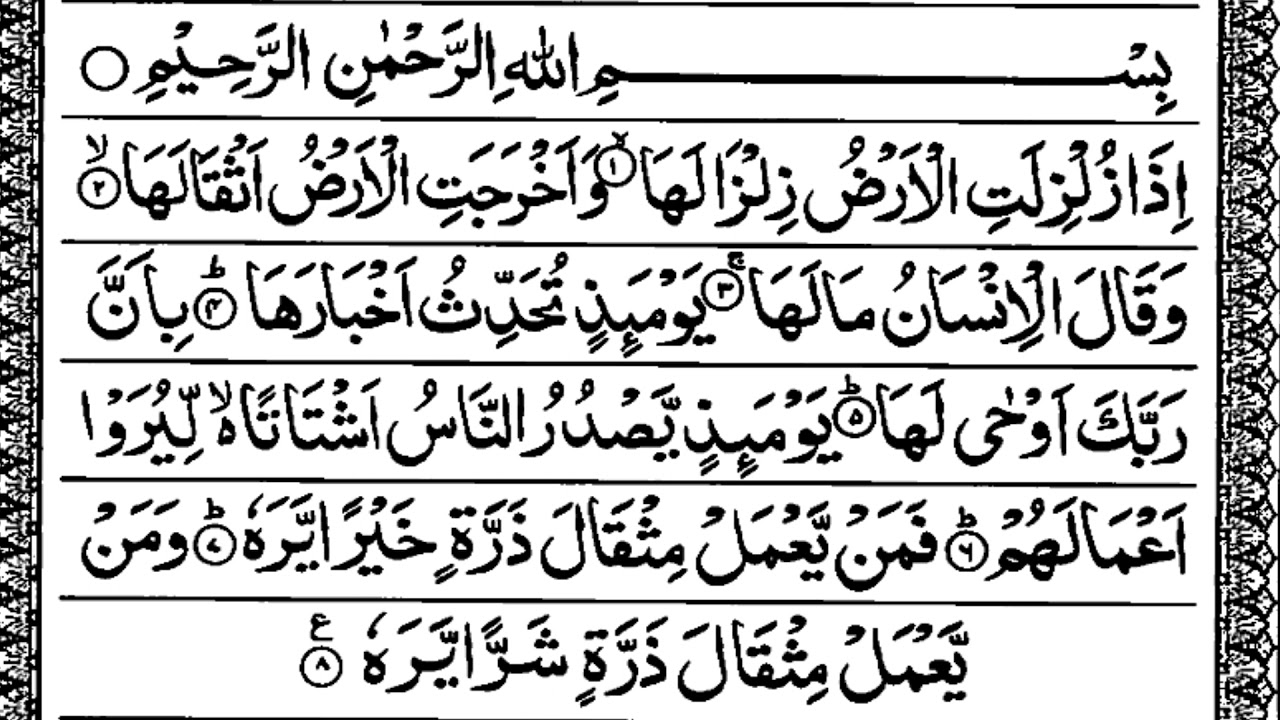 بِسْمِ اللّٰهِ الرَّحْمٰنِ الرَّحِيْمِ ○
اِذَا زُلْزِلَتِ الْاَرْضُ زِلْزَالَهَا ۙ﴿۱﴾ وَاَخْرَجَتِ الْاَرْضُ اَثْقَالَهَا ۙ﴿۲﴾
وَقَالَ الْاِنْسَانُ مَا لَهَا ۚ﴿۳﴾ يَوْمَىِٕذٍ تُحَدِّثُ اَخْبَارَهَا ؕ﴿۴﴾ بِاَنَّ
رَبَّكَ اَوْحٰى لَهَا ؕ﴿۵﴾ يَوْمَىِٕذٍ يَّصْدُرُ النَّاسُ اَشْتَاتًا ۙ۬ لِّيُرَوْا
اَعْمَالَهُمْ ؕ﴿۶﴾ فَمَنْ يَّعْمَلْ مِثْقَالَ ذَرَّةٍ خَيْرًا يَّرَهٗ ؕ﴿۷﴾ وَمَنْ
يَّعْمَلْ مِثْقَالَ ذَرَّةٍ شَرًّا يَّرَهٗ ﴿۸﴾ ع